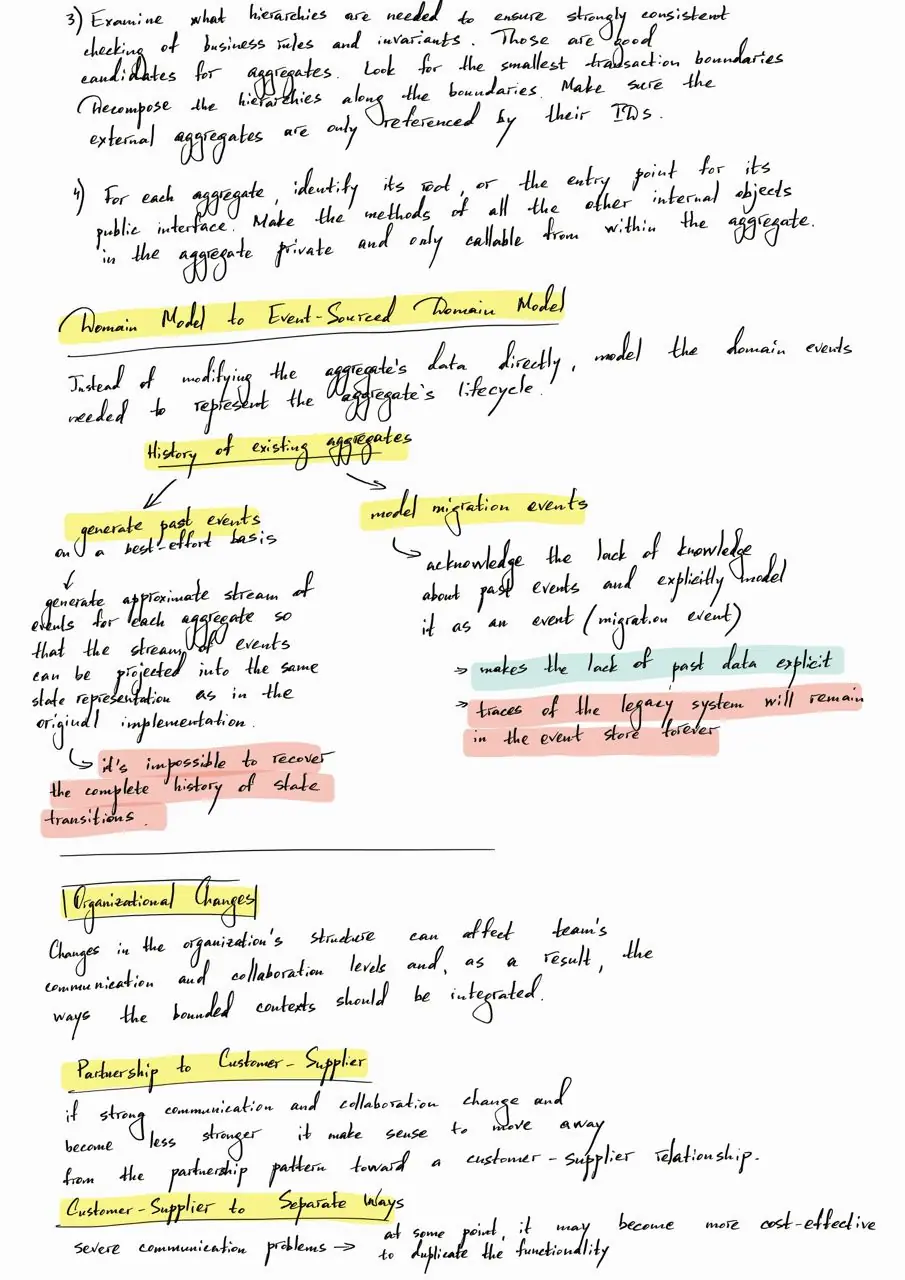 3) Examine what hierarchies are needed to ensure strongly consistent
checking of business rules and invariants. Those are good
candidates for aggregates. Look for the smallest transaction boundaries
Decompose the hierarchies along the boundaries. Make sure the
external aggregates are only referenced by their IDs.
4) For each aggregate, identify its root, or the entry point for its
public interface. Make the methods of all the other internal objects
in the aggregate private and only callable from within the aggregate.
Domain Model to Event-Sourced Domain Model
Instead of modifying the aggregate's data directly, model the domain events
needed to represent the aggregate's lifecycle.
History of existing aggregates
generate past events
on a best-effort basis
generate approximate stream of
events for each aggregate so
that the stream of events
can be projected into the same
state representation as in the
original implementation.
it's impossible to recover
the complete history of state
transitions.
model migration events
acknowledge the lack of knowledge
about past events and explicitly model
it as an event (migration event)
→ makes the lack of past data explicit
→ traces of the legacy system will remain
in the event store forever
Organizational Changes
Changes in the organization's structure can affect team's
communication and collaboration levels and, as a result, the
ways the bounded contexts should be integrated.
Partnership to Customer-Supplier
if strong communication and collaboration change and
become less stronger it make sense to move away
from the partnership pattern toward a customer-supplier relationship.
Customer-Supplier to Separate Ways
severe communication problems → at some point, it may become more cost-effective
to duplicate the functionality